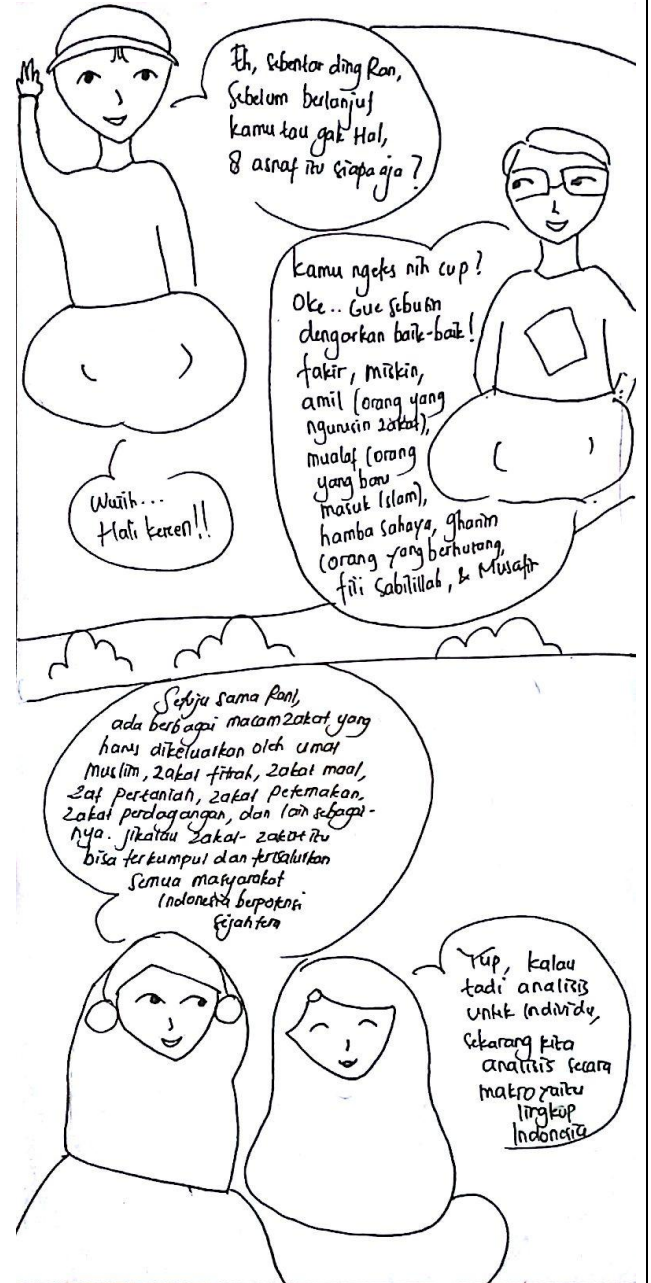 Eh, sebentar ding Ran,
Sebelum berlanjut
kamu tau gak Hal,
8 asnaf itu siapa aja?
kamu ngetes nih cup?
Oke.. Gue sebutin
dengarkan baik-baik!
fakir, miskin,
amil (orang yang
ngurusin zakat),
mualaf (orang
yang baru
masuk Islam),
hamba Sahaya, gharim
(orang yang berhutang,
fili Sabilillah, & Musafir
Wuiih...
Hali keren!!
Setuju sama Rani,
ada berbagai macam zakat yang
harus dikeluarkan oleh umat
muslim, zakat fitrah, zakat maal,
zat pertaniah, zakat peternakan,
zakat perdagangan, dan lain sebagai-
nya. jikalau zakat-zakat itu
bisa terkumpul dan tersalurkan
semua masyarakat
Indonesia berpotensi
sejahtera
Yup, kalau
tadi analisis
untuk individu,
sekarang kita
analisis secara
makro yaitu
lingkup
Indonesia